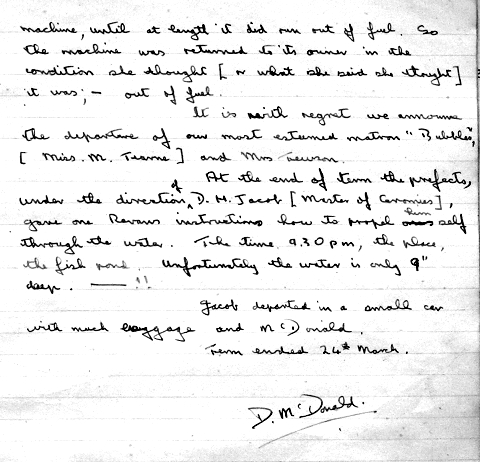 machine, until at length it did run out of fuel. So
the machine was returned to its owner in the
condition she thought [or what she said she thought]
it was; – out of fuel.
It is with regret we announce
the departure of our most esteemed matron "Bubbles",
[Miss. M. Tearne] and Mrs
At the end of term the prefects,
under the direction of D. H. Jacob [Master of Ceremonies],
gave one Revans instructions how to propel himself
through the water. The time, 9.30 pm, the place,
the fish pond. Unfortunately the water is only 9"
deep. — !!
Jacob departed in a small car
with much baggage and McDonald.
Term ended 24th March.
D. McDonald.